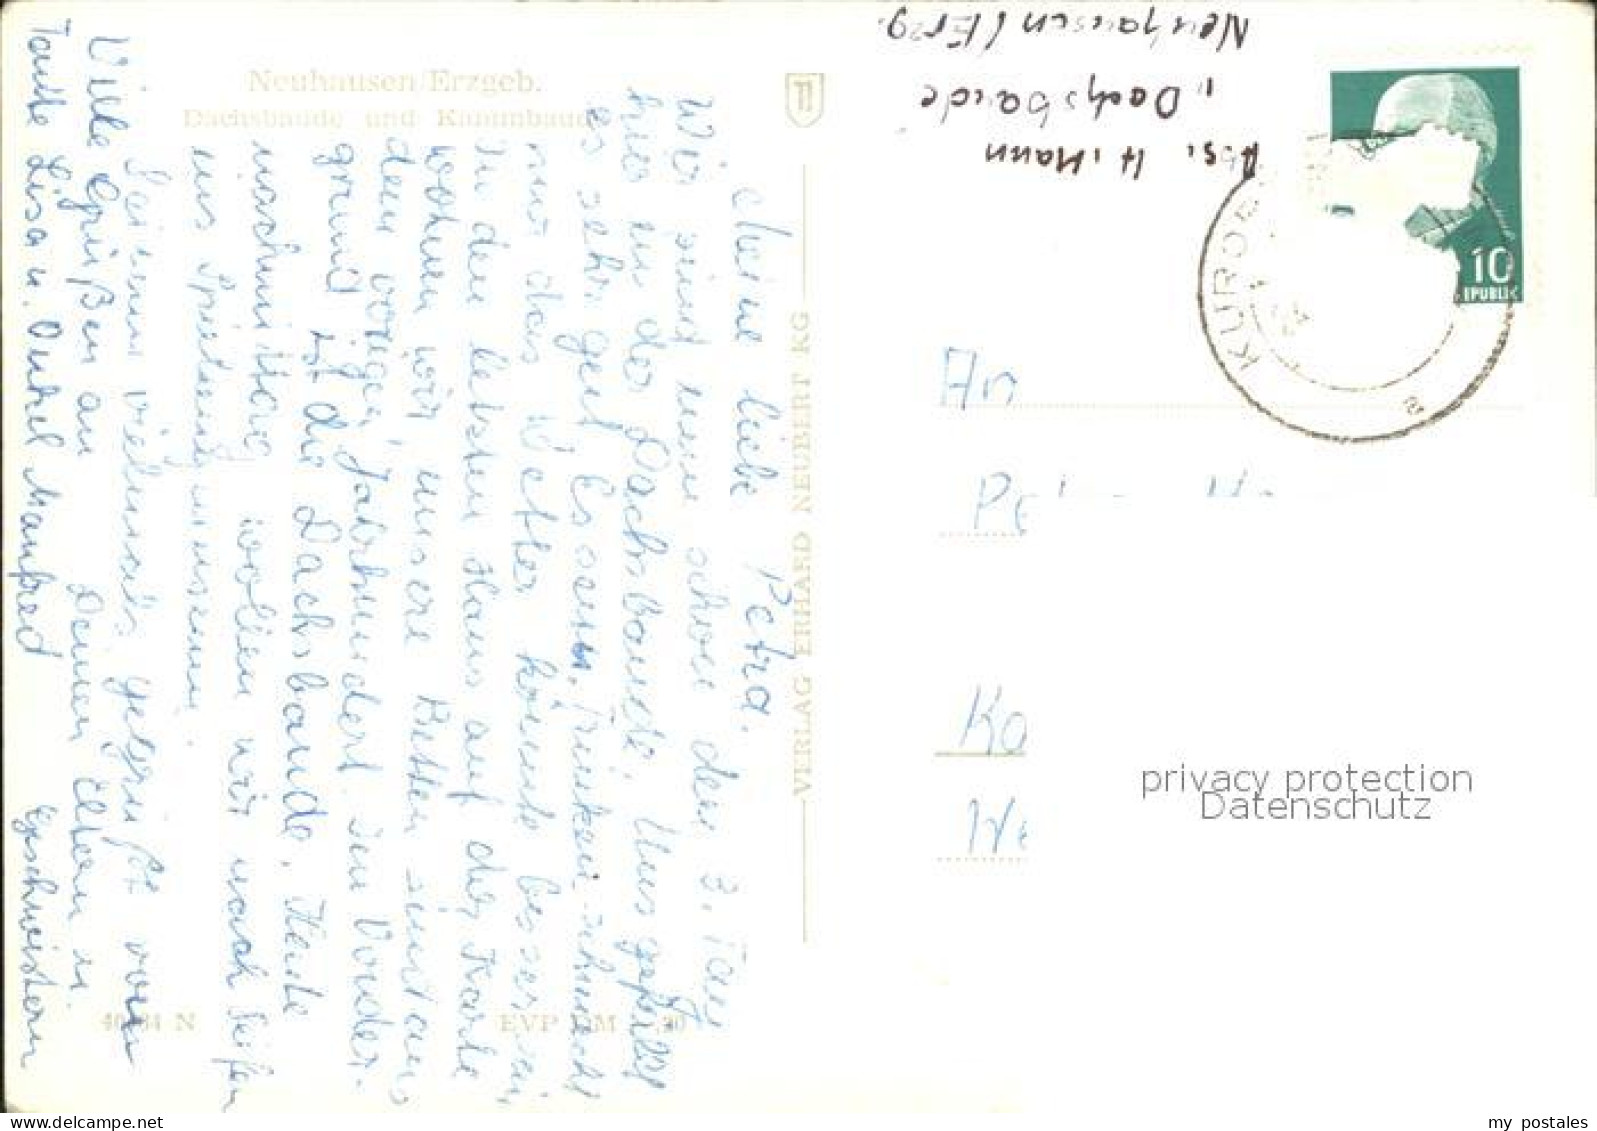 Neuhausen/Erzgeb.
Dachsbaude und Kammbaude
Meine liebe Petra.
Wir sind nun schon den 3. Tag
hier in der Dachsbaude. Uns gefällt
es sehr gut. Essen, Trinken schmeckt
nur das Wetter könnte besser sein.
In den letzten Haus auf der Karte
wohnen wir unsere Betten sind aus
dem vorigen Jahrhundert. Im Vorder-
grund ist die Dachsbaude. Heute
nachmittag wollen wir nach Seifen
uns Spielzeug ansehen.
Sei nun vielmals gegrüßt von
Viele Grüße an Deinen Eltern u. Geschwistern
Tante Lisa u. Onkel Manfred
EVP DM
VERLAG ERHARD NEUBERT KG
Abs. H. Mann
"Dachsbaude
Neuhausen/Erzg.
10
KURO
a
An
Pe
Ko
privacy protection
Datenschutz
my postales